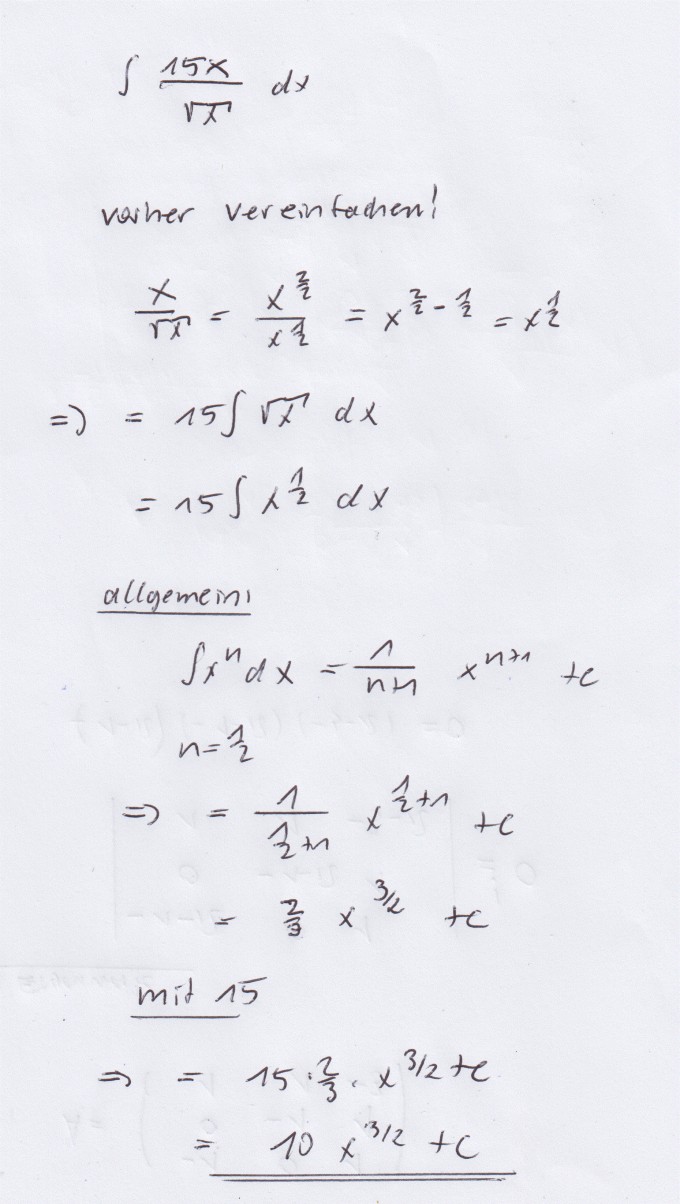 ∫ 15x/√x dx
vorher vereinfachen!
x/√x = x^(2/2)/x^(1/2) = x^(2/2 - 1/2) = x^(1/2)
=> = 15 ∫ √x dx
= 15 ∫ x^(1/2) dx
allgemein:
∫ x^n dx = 1/(n+1) x^(n+1) + c
n = 1/2
=> = 1/(1/2+1) x^(1/2+1) + c
= 2/3 x^(3/2) + c
mit 15
=> = 15 · 2/3 · x^(3/2) + c
= 10 x^(3/2) + c